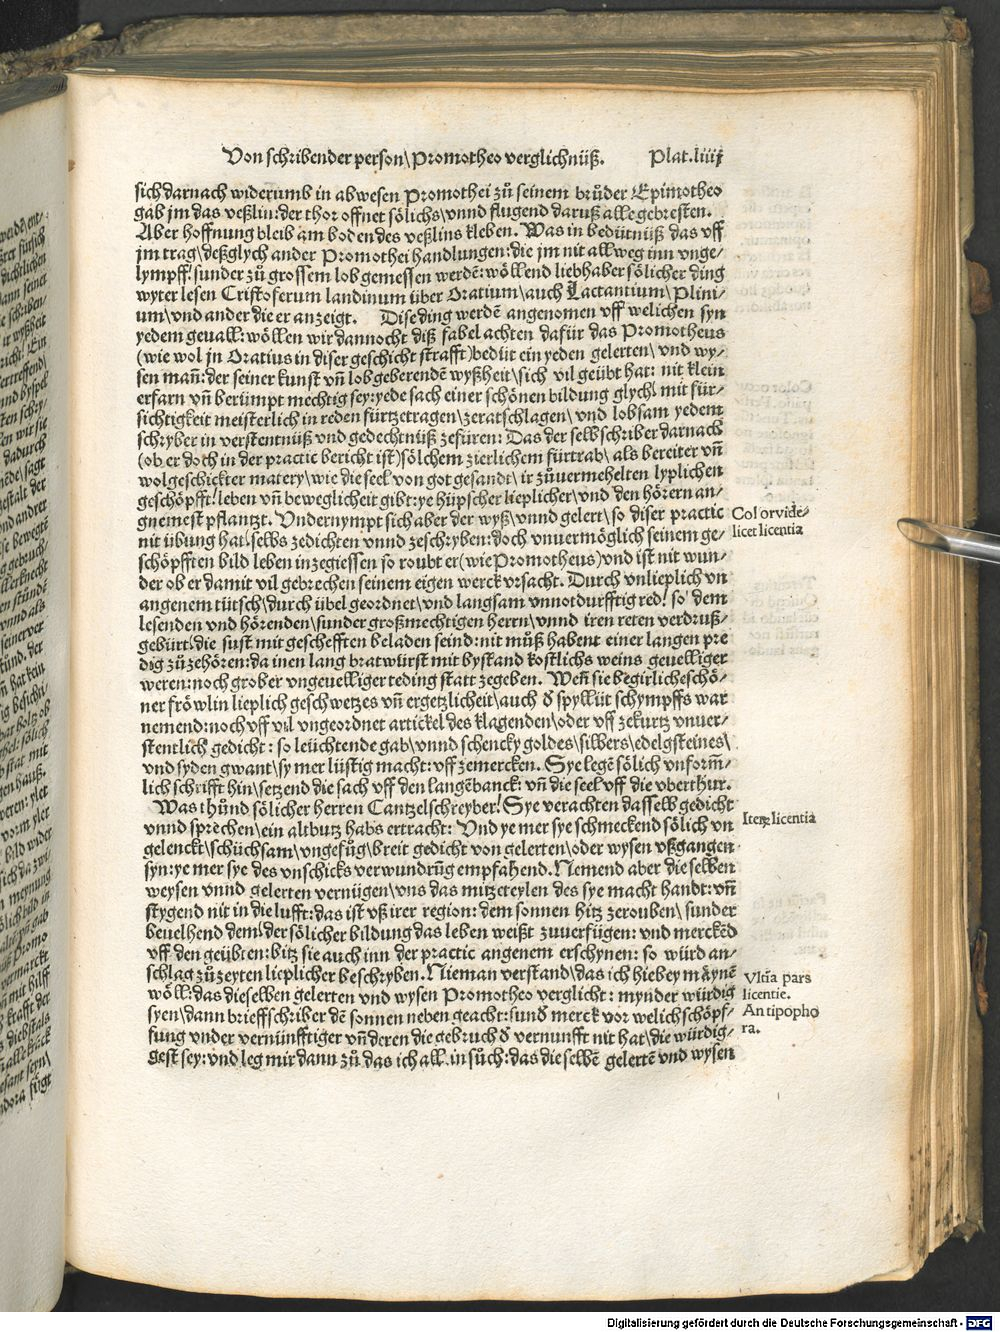 Von schribender person\ Promotheo verglichnüß. Plat.liiij
sich darnach widerumb in abwesen Promothei zů seinem brůder Epimotheo
gab jm das veßlin: der thor offnet sölichs\ vnnd flugend daruß alle gebresten.
Aber hoffnung bleib am boden des veßlins kleben. Was in bedütnüß das vff
jm trag\ deßglych ander Promothei handlungen: die jm nit allweg inn vnge-
lympff/ sunder zů grossem lob gemessen werdē: wöllend liebhaber sölicher ding
wyter lesen Cristoferum landinum über Oratium\ auch Lactantium\ Plini-
um\ vnd ander die er anzeigt. Dise ding werdē angenomen vff welichen syn
yedem geuall: wöllen wir dannocht diß fabel achten dafür das Promotheus
(wie wol jn Oratius in diser geschicht strafft) bedüt ein yeden gelerten\ vnd wy-
sen man̄: der seiner kunst vn̄ lobgeberendē wyßheit\ sich vil geübt hat: nit klein
erfarn vn̄ berümpt mechtig sey: yede sach einer schönen bildung glych\ mit für-
sichtigkeit meisterlich in reden fürtzetragen\ zeratschlagen\ vnd lobsam yedem
schryber in verstentnüß vnd gedechtnüß zefüren: Das der selb schriber darnach
(ob er doch in der practic bericht ist) sölchem zierlichem fürtrab\ als bereiter vn̄
wolgeschickter matery\ wie die seel von got gesandt\ ir zůuermehelten lyplichen
geschöpfft/ leben vn̄ beweglicheit gibt: ye hüpscher lieplicher\ vnd den hörern an-
gnemest pflantzt. Vndernympt sich aber der wyß\ vnnd gelert\ so diser practic
nit übung hat\ selbs zedichten vnnd zeschryben: doch vnuermöglich seinem ge-
schöpfften bild leben inzegiessen so roubt er (wie Promotheus) vnd ist nit wun-
der ob er damit vil gebrechen seinem eigen werck vrsacht. Durch vnlieplich vn
angenem tütsch\ durch übel geordnet\ vnd langsam vnnotdurfftig red/ so dem
lesenden vnd hörenden\ sunder großmechtigen herrn\ vnnd iren reten verdruß-
gebürt\ die sust mit geschefften beladen seind: nit můß habent einer langen pre
dig zů zehören: da inen lang bratwürst mit bystand kostlichs weins geuelliger
weren: noch grober vngeuelliger teding statt zegeben. Wen̄ sie begirliche schö-
ner fröwlin lieplich geschwetzes vn̄ ergetzlicheit\ auch ď spyllüt schympffs war
nemend: noch vff vil vngeordnet artickel des klagenden\ oder vff zekurtz vnuer-
stentlich gedicht: so leüchtende gab\ vnnd schencky goldes\ silbers\ edelgsteines\
vnd syden gwant\ sy mer lüstig macht: vff zemercken. Sye legē sölich vnform̄-
lich schrifft hin\ setzend die sach vff den langēbanck: vn̄ die seel vff die vberthür.
Was thůnd sölicher herren Cantzelschreyber/ Sye verachten dasselb gedicht
vnnd sprechen\ ein altbutz habs ertracht: Vnd ye mer sye schmeckend sölich vn
gelenckt\ schüchsam\ vngefůg\ breit gedicht von gelerten\ oder wysen vßgangen
syn: ye mer sye des vnschicks verwundrūg empfahend. Nemend aber die selben
weysen vnnd gelerten vernügen\ vns das mitzeteylen des sye macht handt: vn̄
stygend nit in die lufft: das ist vß irer region: dem sonnen hitz zerouben\ sunder
beuelhend dem\ der sölicher bildung das leben weißt zuuerfügen: vnd merckēd
vff den geübten: bitz sie auch inn der practic angenem erschynen: so würd an-
schlag zů zeyten lieplicher beschryben. Nieman verstand\ das ich hiebey mäynē
wöll: das dieselben gelerten vnd wysen Promotheo verglicht: mynder würdig
syen\ dann brieffschriber dē sonnen neben geacht: sunď merck vor welich schöpf-
fung vnder vernünfftiger vn̄ deren die gebruch ď vernunfft nit hat\ die würdig-
gest sey: vnd leg mir dann zů das ich all in sůch: das die selbē gelertē vnd wysen
Color vide-
licet licentia
Iterꝝ licentia
Vltīa pars
licentie.
Antipopho
ra.
Digitalisierung gefördert durch die Deutsche Forschungsgemeinschaft - DFG